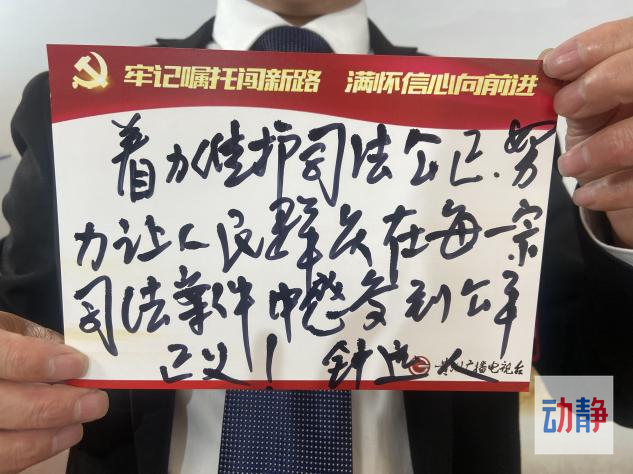 牢记嘱托闯新路 满怀信心向前进
着力维护司法公正、努
力让人民群众在每一宗
司法案件中感受到公平
正义！ 钟
贵州广播电视台
动静